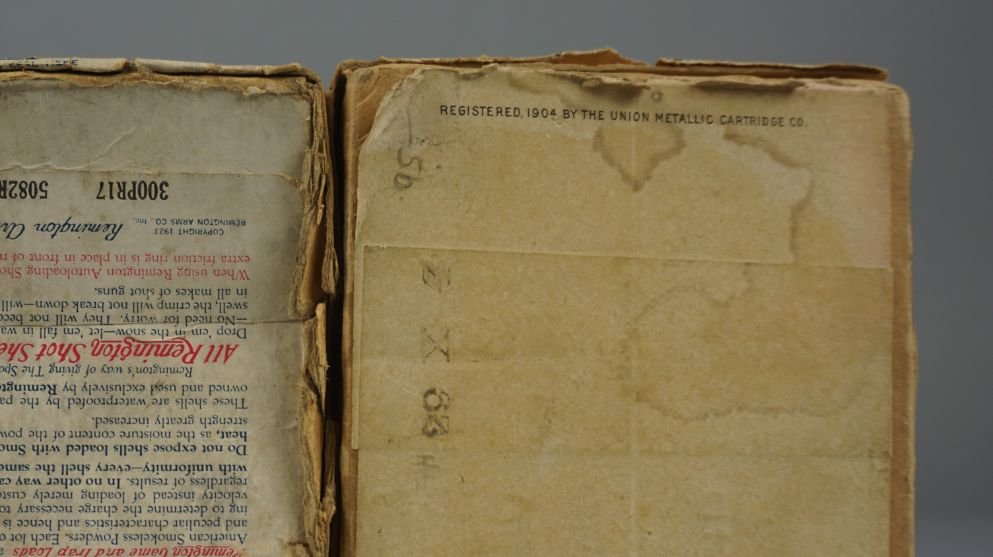 REGISTERED, 1904, BY THE UNION METALLIC CARTRIDGE CO.
5b
Z X 63 H
Remington Game and Trap Loads
American Smokeless Powders. Each lot o
and peculiar characteristics and hence is
ing to determine the charge necessary to
velocity instead of loading merely custo
regardless of results. In no other way ca
with uniformity—every shell the same
Do not expose shells loaded with Smo
heat, as the moisture content of the pow
strength greatly increased.
These shells are waterproofed by the pa
owned and used exclusively by Remingt
Remington's way of giving The Spo
All Remington Shot She
Drop 'em in the snow—let 'em fall in wa
—No need for worry. They will not beco
swell, the crimp will not break down—will
in all makes of shot guns.
When using Remington Autoloading Sho
extra friction ring is in place in front of re
COPYRIGHT 1923
REMINGTON ARMS CO., INC.
Remington Ar
300PR17 5082R